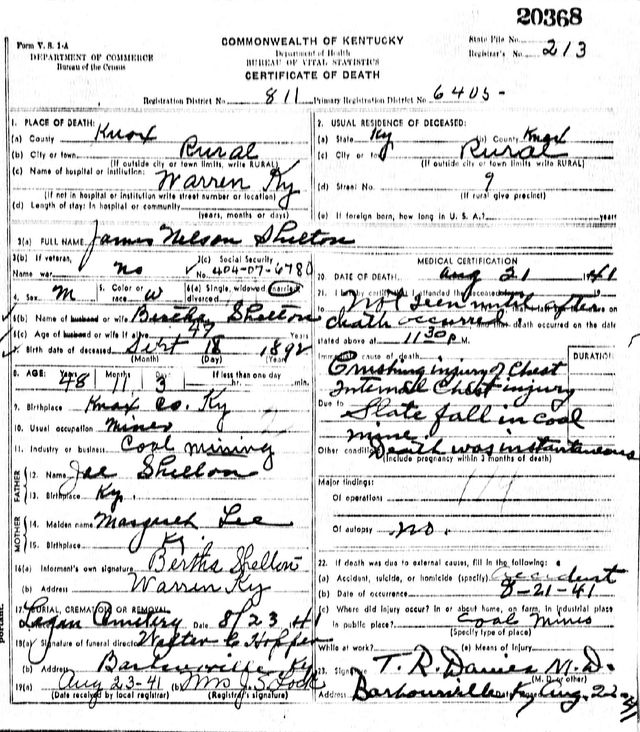 20368
Form V. S. 1-A
DEPARTMENT OF COMMERCE
Bureau of the Census
COMMONWEALTH OF KENTUCKY
Department of Health
BUREAU OF VITAL STATISTICS
CERTIFICATE OF DEATH
State File No.
Registrar's No. 213
Registration District No. 811 Primary Registration District No. 6405-
1. PLACE OF DEATH:
(a) County Knox
(b) City or town Rural
(If outside city or town limits, write RURAL)
(c) Name of hospital or institution: Warren Ky
(If not in hospital or institution write street number or location)
(d) Length of stay: In hospital or community
(years, months or days)
2. USUAL RESIDENCE OF DECEASED:
(a) State Ky (b) County Knox
(c) City or town Rural
(If outside city or town limits, write RURAL)
(d) Street No. 9
(If rural give precinct)
(e) If foreign born, how long in U. S. A.? years
3(a) FULL NAME James Nelson Shelton
3(b) If veteran, name war no 3(c) Social Security No. 404-07-6780
4. Sex M 5. Color or race W 6(a) Single, widowed, married, divorced
6(b) Name of husband or wife Bertha Shelton
6(c) Age of husband or wife if alive 47 Years
7. Birth date of deceased Sept 18 1892
(Month) (Day) (Year)
8. AGE: Years 48 Months 11 Days 3 If less than one day hr. min.
9. Birthplace Knox Co. Ky
10. Usual occupation Miner
11. Industry or business Coal mining
FATHER
12. Name Joe Shelton
13. Birthplace Ky.
MOTHER
14. Maiden name Margaret Lee
15. Birthplace Ky.
16(a) Informant's own signature Bertha Shelton
(b) Address Warren Ky
17. BURIAL, CREMATION OR REMOVAL
Cemetery Date 8/23 1941
18(a) Signature of funeral director Walter C Hopper
(b) Address Barbourville Ky
19(a) Aug 23-41 (b) Mrs J. S. Lock
(Date received by local registrar) (Registrar's signature)
MEDICAL CERTIFICATION
20. DATE OF DEATH Aug 21 1941
21. I hereby certify that I attended the deceased
Not seen until after
death occurred death occurred on the date
stated above at 11:30 P.M.
Immediate cause of death DURATION
Crushing injury of Chest
Internal Chest injury
Due to Slate fall in coal
mine
Other conditions Death was instantaneous
(Include pregnancy within 3 months of death)
Major findings:
Of operations
Of autopsy no.
22. If death was due to external causes, fill in the following:
(a) Accident, suicide, or homicide (specify) accident
(b) Date of occurrence 8-21-41
(c) Where did injury occur? In or about home, on farm, in industrial place
in public place? Coal Mines
(Specify type of place)
While at work? (e) Means of Injury
23. Signature T. R. Davies M. D.
(M. D. or other)
Address Barbourville Ky